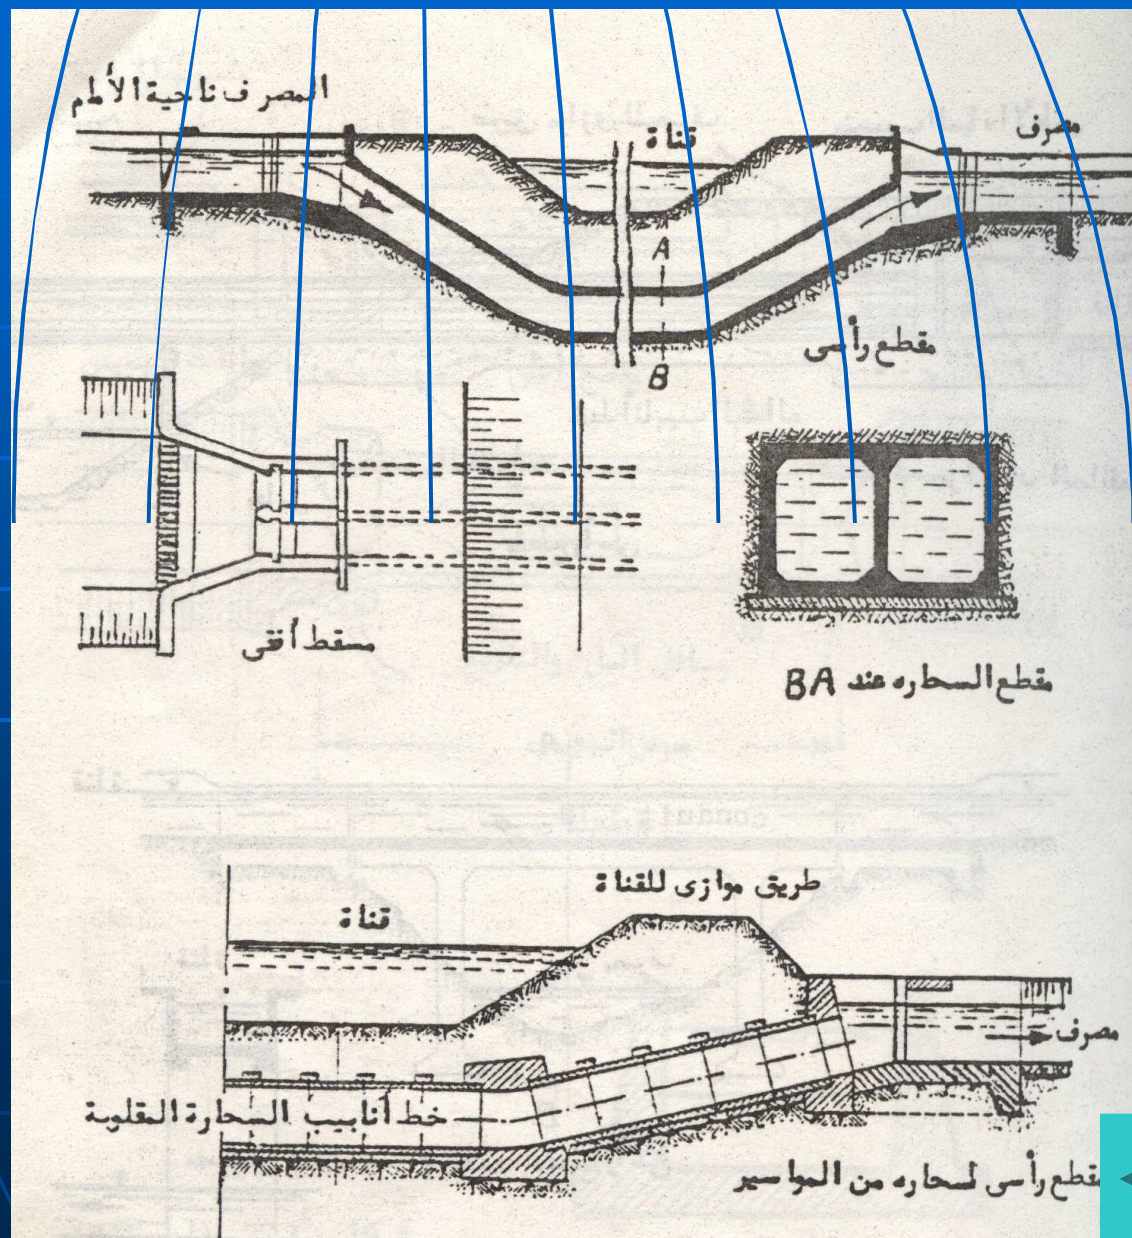 المصرف ناحية الأمام
قناة
مصرف
A
B
مقطع رأسى
مسقط أفقى
مقطع السحاره عند BA
طريق موازى للقناة
قناة
مصرف
خط أنابيب السحارة المقلوبة
مقطع رأسى لسحاره من المواسير